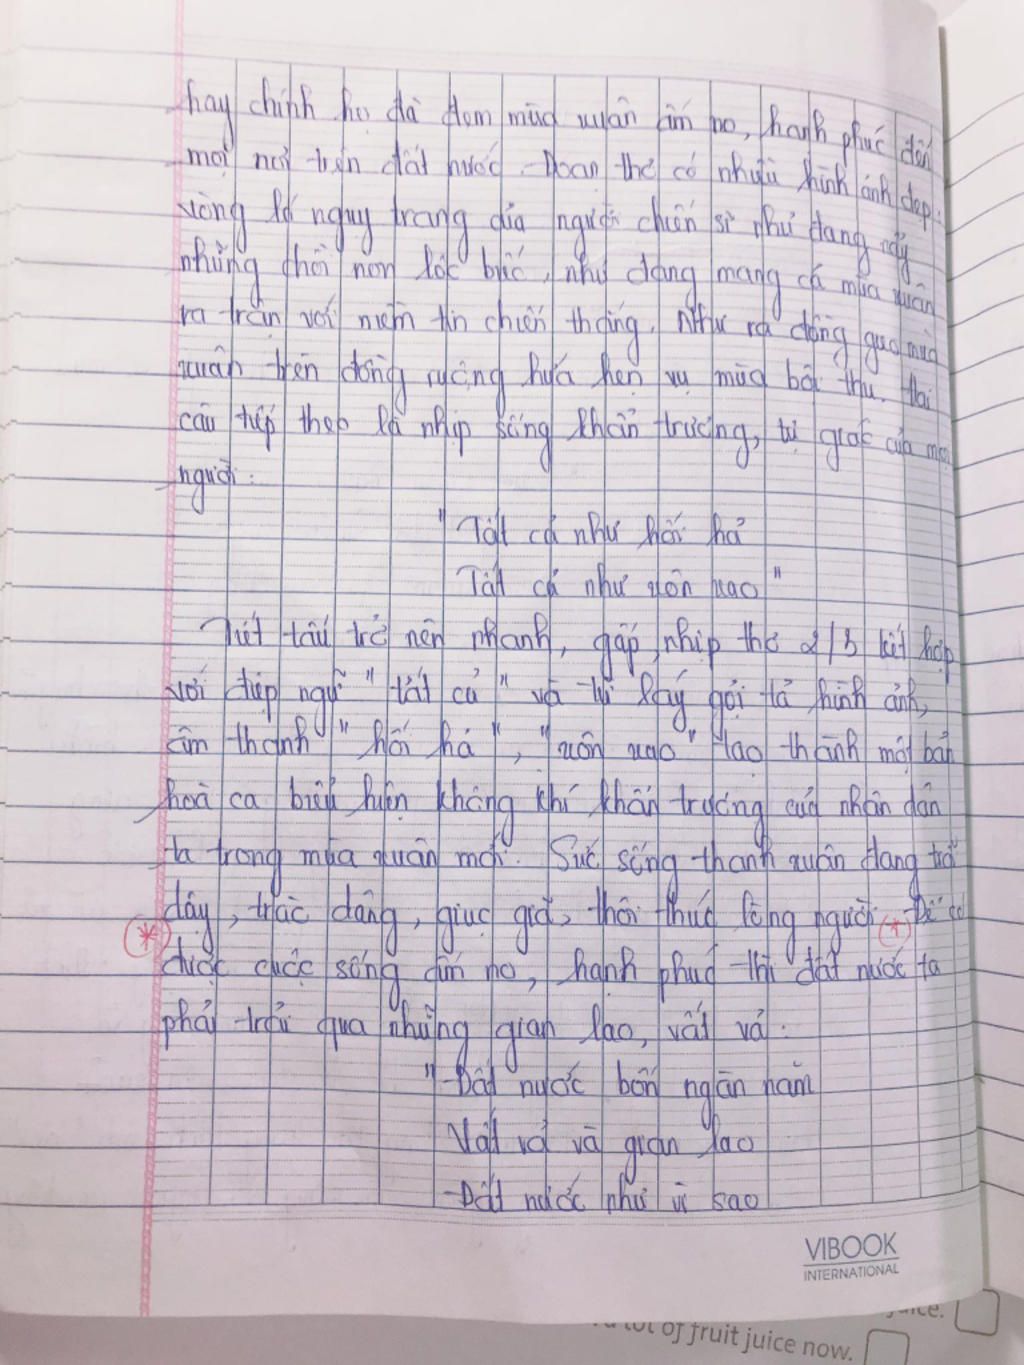 hay chính họ đã đem mùa xuân ấm no, hạnh phúc đến
mọi nơi trên đất nước. Đoạn thơ có nhiều hình ảnh đẹp:
vòng lá nguỵ trang của người chiến sĩ như đang nảy
những chồi non lộc biếc, như đang mang cả mùa xuân
ra trận với niềm tin chiến thắng. Như ra đồng gieo mùa
xuân trên đồng ruộng hứa hẹn vụ mùa bội thu. Hai
câu tiếp theo là nhịp sống khẩn trương, tự giác của mọi
người:
"Tất cả như hối hả
Tất cả như xôn xao"
Tiết tấu trở nên nhanh, gấp, nhịp thơ 2/3 kết hợp
với điệp ngữ "tất cả" và từ láy gợi tả hình ảnh,
âm thanh "hối hả", "xôn xao" tạo thành một bản
hoà ca biểu hiện không khí khẩn trương của nhân dân
ta trong mùa xuân mới. Sức sống thanh xuân đang trỗi
dậy, trào dâng, giục giã, thôi thúc lòng người. (*) Để có
(*) được cuộc sống ấm no, hạnh phúc thì đất nước ta
phải trải qua những gian lao, vất vả:
"Đất nước bốn ngàn năm
Vất vả và gian lao
Đất nước như vì sao
VIBOOK
INTERNATIONAL
juice.
a lot of fruit juice now.